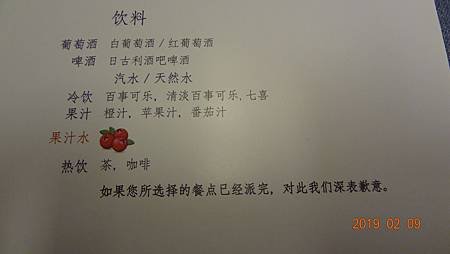 饮料
葡萄酒 白葡萄酒/红葡萄酒
啤酒 日古利酒吧啤酒
汽水/天然水
冷饮 百事可乐，清淡百事可乐,七喜
果汁 橙汁，苹果汁，番茄汁
果汁水
热饮 茶，咖啡
如果您所选择的餐点已经派完，对此我们深表歉意。
2019 02 09